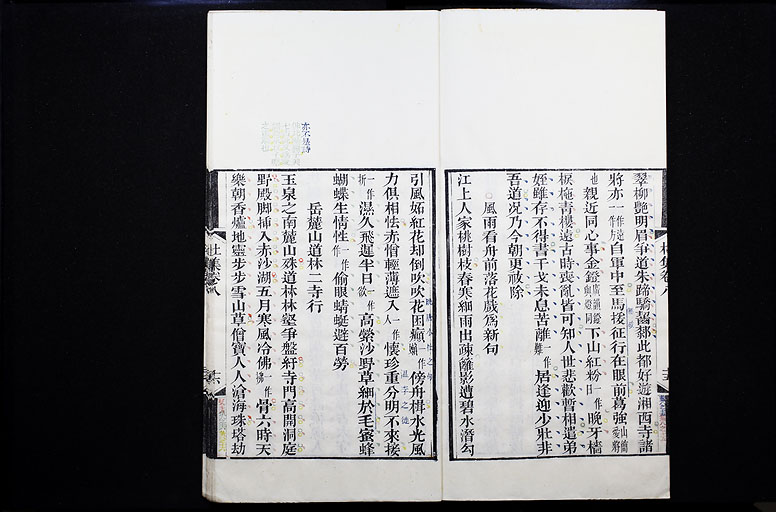 翠柳艷明眉爭道朱蹄驕齧郄此都好遊湘西寺諸
將亦一作自軍中至馬援征行在眼前葛強山簡愛將
也親近同心事金鐙下山紅粉一作晚牙檣
捩柂青樓遠古時喪亂皆可知人世悲歡暫相遣弟
姪雖存不得書干戈未息苦離一作居逢迎少壯非
吾道況乃今朝更祓除
風雨看舟前落花戲為新句
江上人家桃樹枝春寒細雨出疎籬影遭碧水潛勾
引風妬紅花却倒吹吹花困癲一作傍舟楫水光風
力俱相怯赤憎輕薄遮入一作懷珍重分明不來接
一作折濕久飛遲半日一作欲高縈沙野草細於毛蜜蜂
蝴蝶生情性一作偷眼蜻蜓避百勞
岳麓山道林二寺行
玉泉之南麓山殊道林林壑爭盤紆寺門高開洞庭
野殿脚插入赤沙湖五月寒風冷佛一作骨六時天
樂朝香爐地靈步步雪山草僧寶人人滄海珠塔劫
杜集卷八
杜集卷八